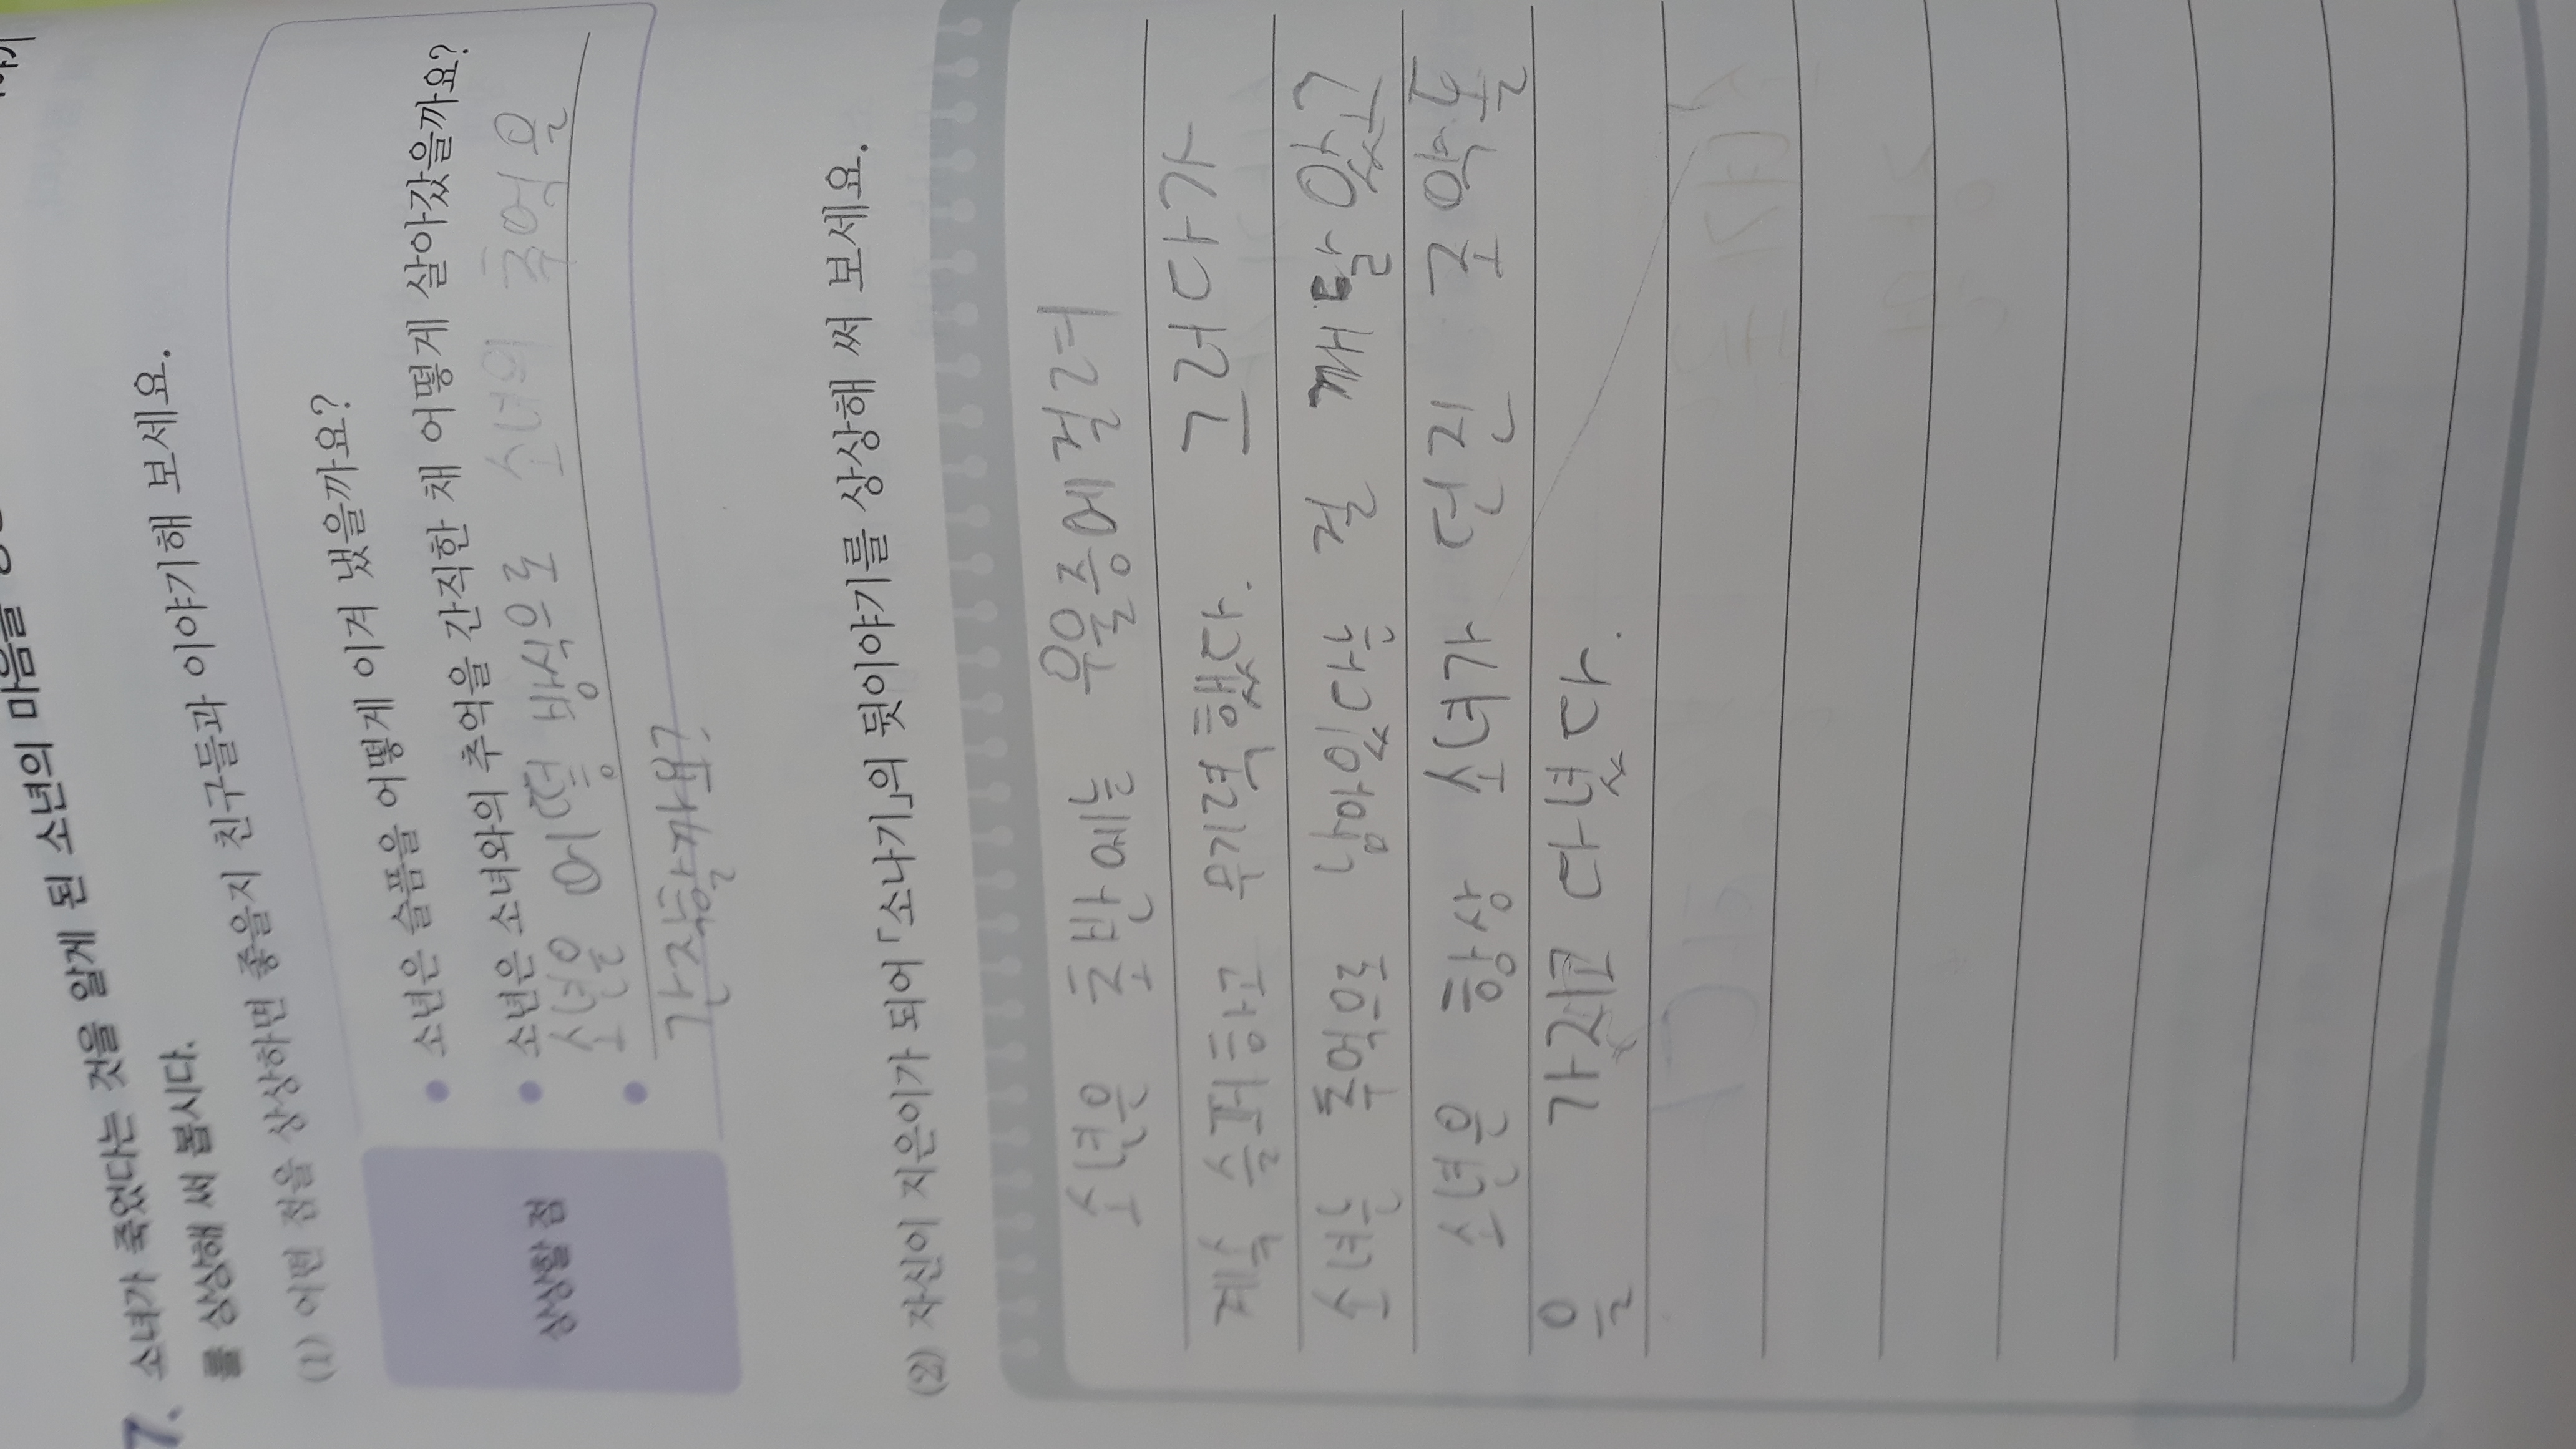 7. 소녀가 죽었다는 것을 알게 된 소년의 마음을
를 상상해 써 봅시다.
(1) 어떤 점을 상상하면 좋을지 친구들과 이야기해 보세요.
상상할 점
• 소년은 슬픔을 어떻게 이겨 냈을까요?
• 소년은 소녀와의 추억을 간직한 채 어떻게 살아갔을까요?
• 소년은 어떤 방식으로 소녀의 추억을
간직할까요?
(2) 자신이 지은이가 되어 「소나기」의 뒷이야기를 상상해 써 보세요.
소년은 초반에는 우울증에 걸려
계속 슬퍼하고 무기력했다. 그러다가
소녀는 추억으로 남아있다는 걸 깨달았고
소년은 항상 소녀가 던진 조약돌
을 가지고 다녔다.